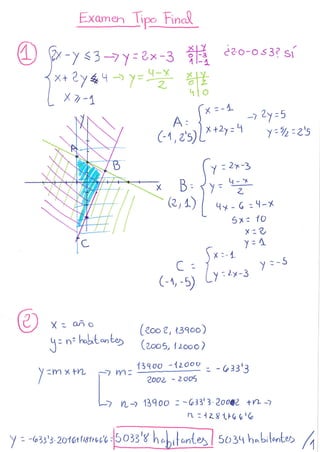 Examen Tipo Final
1
2x-y≤3 → y=2x-3
x | y
0 | -3
1 | -1
¿2·0-0≤3? sí
x+2y≤4 → y=(4-x)/2
x | y
0 | 2
4 | 0
x≥-1
A: (-1, 2'5) { x=-1 ; x+2y=4 → 2y=5
y=5/2=2'5
Y
A
B
X
C
B: (2,1) { y=2x-3 ; y=(4-x)/2
4x-6=4-x
5x=10
x=2
y=1
C= (-1,-5) { x=-1 ; y=2x-3
y=-5
2
x= año
y= nº habitantes
(2002, 13900)
(2005, 12000)
y=mx+n → m= (13900-12000)/(2002-2005) = -633'3
→ n → 13900 = -633'3·2002 + n →
n=1281816'6
y=-633'3·2016+1281816'6= 5033'8 habitantes / 5034 habitantes